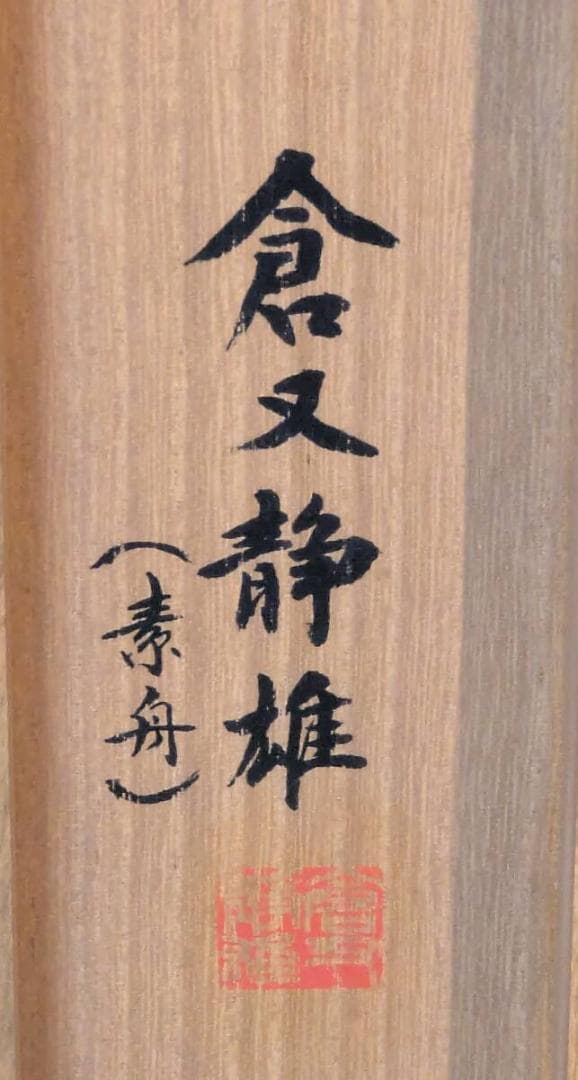 倉又静雄
(素舟)